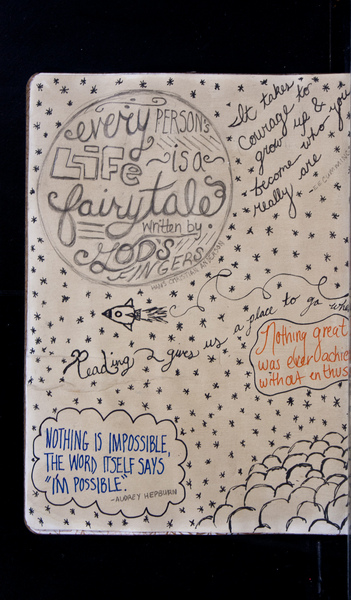 every PERSON'S
LiFe is a
fairytale
written by
GOD'S
FINGERS
HANS CHRISTIAN ANDERSON
It takes
courage to
grow up &
become who you
really are
-E.E. CUMMINGS
Reading gives us a place to go
Nothing great
was ever
without
NOTHING IS IMPOSSIBLE,
THE WORD ITSELF SAYS,
"I'M POSSIBLE".
-AUDREY HEPBURN